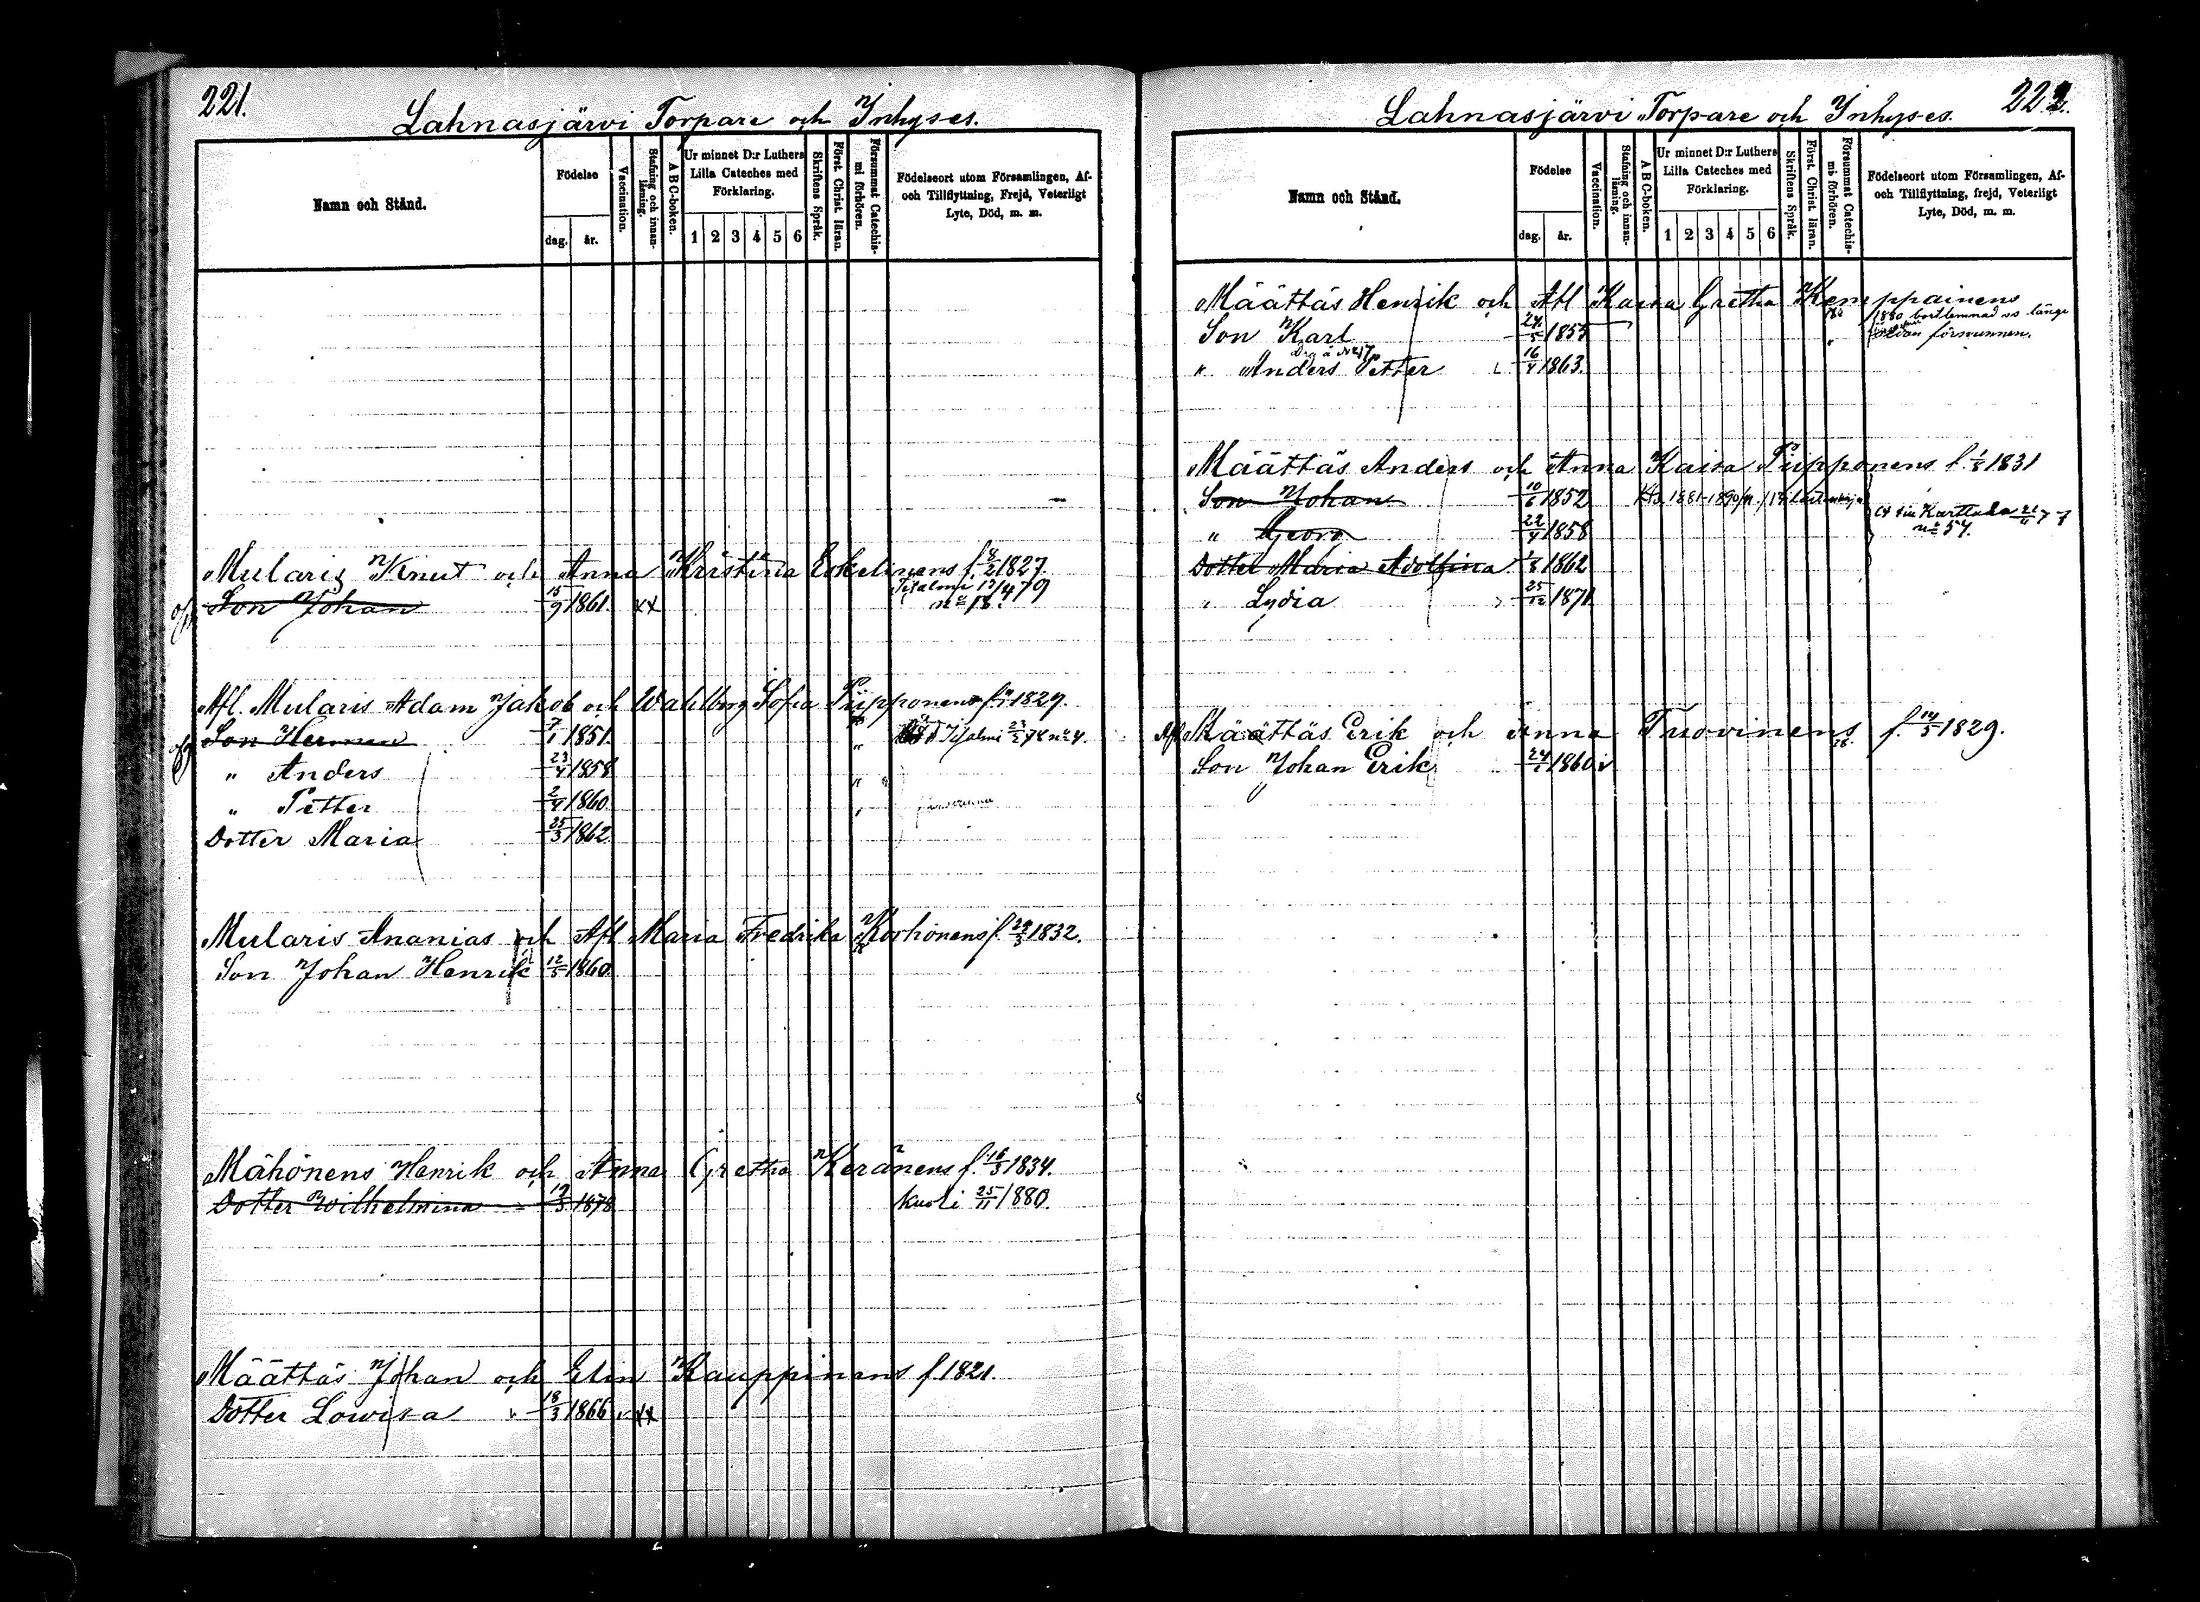 221.
Lahnasjärvi Torpare och Inhyses.
Namn och Stånd.
Födelse
dag.
år.
Vaccination.
Stafning och innanläsning.
A B C-boken.
Ur minnet D:r Luthers Lilla Cateches med Förklaring.
1 2 3 4 5 6
Skriftens Språk.
Först. Christ. läran.
Försummat Catechismi förhören.
Födelseort utom Församlingen, Af-
och Tillflyttning, Frejd, Veterligt
Lyte, Död, m. m.
Mularis Knut och Anna Kristina Eskelinens f. 8/2 1827
Son Johan 15/9 1861. xx Idalmi 13/4 79
n:o 18.
Afl. Mularis Adam Jakob och Wahlborg Sofia Piipponens f. 1829.
Son Herman 7/1 1851. Idalmi 23/2 78 n:o 4.
" Anders 23/4 1858
" Petter 2/4 1860.
Dotter Maria 25/3 1862.
Mularis Ananias och Afl Maria Fredrika Korhonens f. 22/3 1832.
Son Johan Henrik 12/5 1860.
Mähönens Henrik och Anna Gretha Keränens f. 16/3 1834.
Dotter Wilhelmina 12/3 1878 kuoli 25/11 1880.
Määttäs Johan och Elin Kauppinens f 1821.
Dotter Lowisa 18/3 1866 xx
222.
Lahnasjärvi Torpare och Inhyses.
Namn och Stånd.
Födelse
dag.
år.
Vaccination.
Stafning och innanläsning.
A B C-boken.
Ur minnet D:r Luthers Lilla Cateches med Förklaring.
1 2 3 4 5 6
Skriftens Språk.
Först. Christ. läran.
Försummat Catechismi förhören.
Födelseort utom Församlingen, Af-
och Tillflyttning, frejd, Veterligt
Lyte, Död, m. m.
Määttäs Henrik och Afl Kaisa Gretha Kemppainens
Son Karl 24/5 1855 1880 bortlemnad ss länge
sedan försvunnen.
" Anders Petter 16/4 1863.
Määttäs Anders och Anna Kaisa Piipponens f. 1/8 1831
Son Johan 10/6 1852 Kts 1881-1890
" Georg 22/4 1858 Karttula 21/4 77
n:o 57.
Dotter Maria Adolfina 1/8 1862
" Lydia 25/12 1871
Afl Määttäs Erik och Anna Tuovinens f. 14/5 1829.
Son Johan Erik 24/1 1860